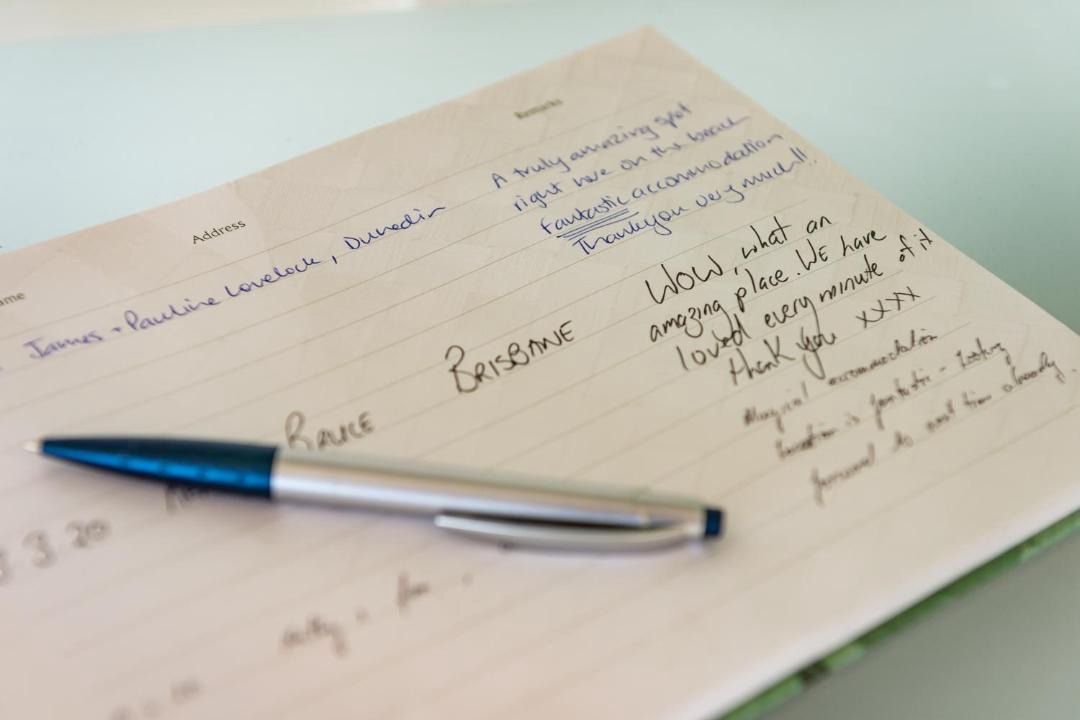 Remarks
Address
ame
A truly amazing spot
right here on the beach
fantastic accommodation
Thankyou very much!!
James + Pauline Lovelock, Dunedin
WOW, what an
amazing place. WE have
loved every minute of it
thank you xxxx
BRISBANE
BRUCE
Magical accommodation
location is fantastic - looking
forward to next time already.
3 20